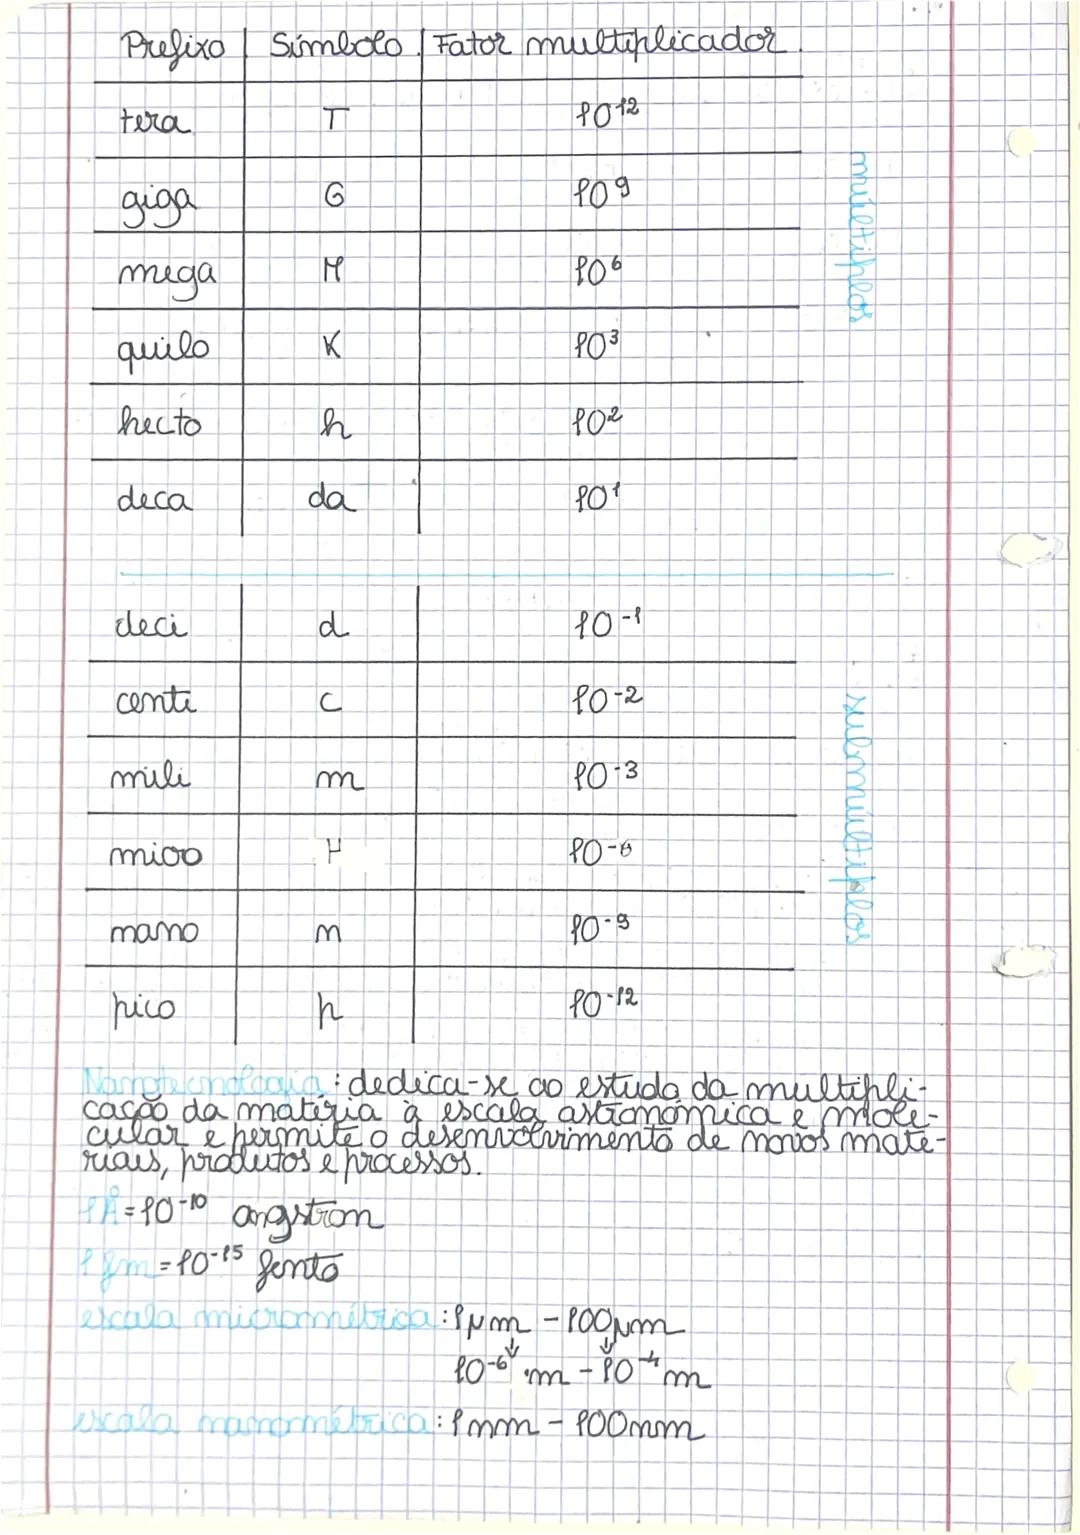 Prefixo Símbolo Fator multiplicador
tera T 10¹²
giga G 10⁹
mega M 10⁶
quilo K 10³
hecto h 10²
deca da 10¹
múltiplos
deci d 10⁻¹
centi c 10⁻²
mili m 10⁻³
micro µ 10⁻⁶
nano n 10⁻⁹
pico p 10⁻¹²
submúltiplos
Nanotecnologia: dedica-se ao estudo da multipli-
cação da matéria à escala astronómica e mole-
cular e permite o desenvolvimento de novos mate-
riais, produtos e processos.
1Å = 10⁻¹⁰ angstron
1 fm = 10⁻¹⁵ fento
escala micrométrica: 1µm - 100µm
10⁻⁶ m - 10⁻⁴ m
escala nanométrica: 1nm - 100nm